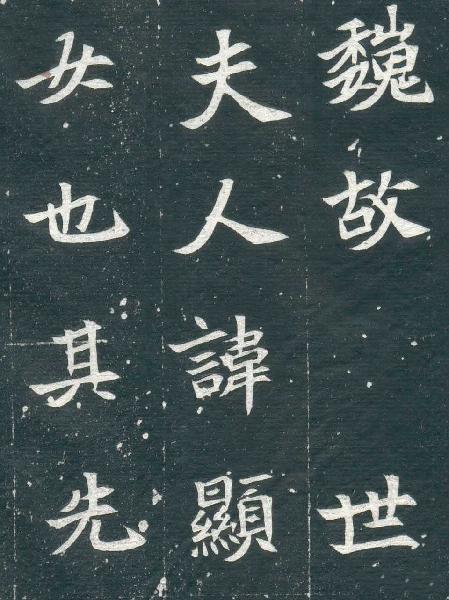 魏故世
夫人諱顯
女也其先